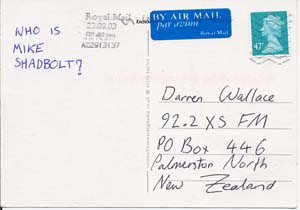 WHO IS
MIKE
SHADBOLT?
Royal Mail
A22913137
BY AIR MAIL
par avion
Royal Mail
47P
Darren Wallace
92.2 XS FM
PO Box 446
Palmerston North
New Zealand